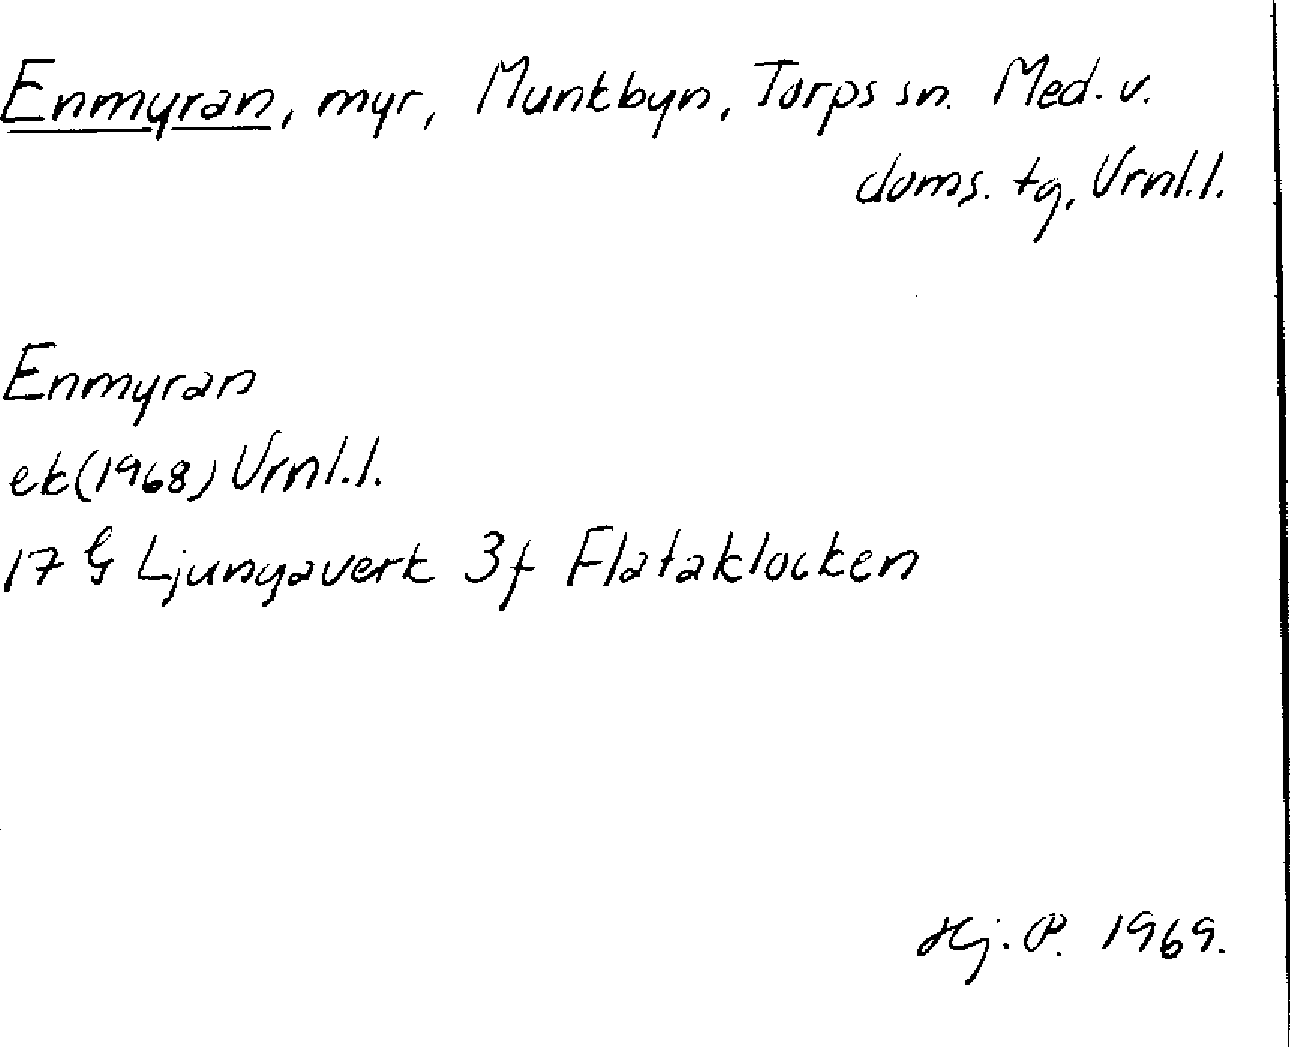 Enmyran, myr, Munkbyn, Torps sn. Med. v.
doms. tg, Vrnl.l.
Enmyran
ek(1968) Vrnl.l.
17 G Ljungaverk 3f Flataklocken
Hj. P. 1969.